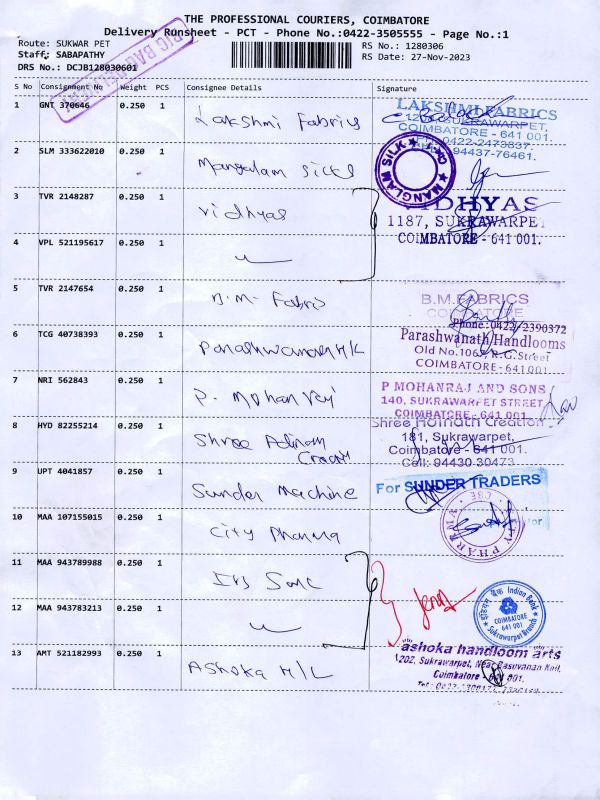 THE PROFESSIONAL COURIERS, COIMBATORE
Delivery Runsheet - PCT - Phone No.:0422-3505555 - Page No.:1
Route: SUKWAR PET
Staff: SABAPATHY
DRS No.: DCJB128030601
RS No.: 1280306
RS Date: 27-Nov-2023
S No Consignment No Weight PCS Consignee Details Signature
1 GNT 370646 0.250 1 Lakshmi Fabrics
LAKSHMI FABRICS
SUKRAWARPET,
COIMBATORE - 641 001.
PH:0422-2473837.
94437-76461.
2 SLM 333622010 0.250 1 Mangalam silks
MANGLAM SILK
3 TVR 2148287 0.250 1 Vidhyas
VIDHYAS
1187, SUKRAWARPET
COIMBATORE - 641 001.
4 VPL 521195617 0.250 1
5 TVR 2147654 0.250 1 B.M. Fabris
B.M.FABRICS
COIMBATORE
Phone:0422-2390372
6 TCG 40738393 0.250 1 H/L
Parashwanath Handlooms
Old No.106, R.G.Street
COIMBATORE-641001
7 NRI 562843 0.250 1 P. Mohan
P MOHANRAJ AND SONS
140, SUKRAWARPET STREET,
COIMBATORE - 641 001.
8 HYD 82255214 0.250 1 Shree
Shree Creation
181, Sukrawarpet,
Coimbatore - 641 001.
Cell: 94430 30473
9 UPT 4041857 0.250 1 Sunder Machine
For SUNDER TRADERS
10 MAA 107155015 0.250 1 City Pharma
CITY PHARMA
CBE
11 MAA 943789988 0.250 1
12 MAA 943783213 0.250 1
Indian Bank
COIMBATORE
641 001
Sukrawarpet Branch
13 AMT 521182993 0.250 1 Ashoka H/L
ashoka handloom arts
202, Sukrawarpet, Near Basuvanan Koil,
Coimbatore - 641 001.